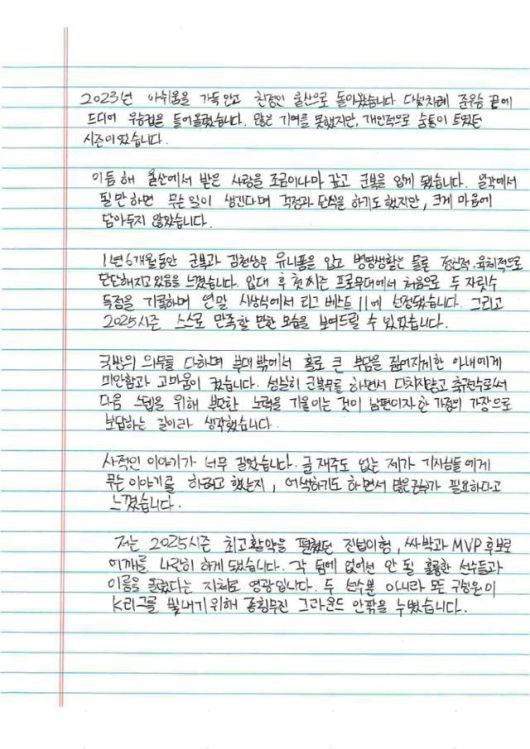 2023년 아쉬움을 가득 안고 친정인 울산으로 돌아왔습니다. 다섯차례 준우승 끝에
드디어 우승컵을 들어올렸습니다. 많은 기여를 못했지만, 개인적으로 숨통이 트였던
시즌이었습니다.
이듬 해 울산에서 받은 사랑을 조금이나마 갚고 군복을 입게 됐습니다. 울산에서
필 만하면 무슨 일이 생긴다며 걱정과 탄식을 하기도 했지만, 크게 마음에
담아두지 않았습니다.
1년 6개월동안 군복과 김천상무 유니폼을 입고 병영생활은 물론 정신적·육체적으로
단단해지고 있음을 느꼈습니다. 입대 후 첫 시즌 프로무대에서 처음으로 두 자릿수
득점을 기록하며 연말 시상식에서 리그 베스트 11에 선정됐습니다. 그리고
2025시즌 스스로 만족할 만한 모습을 보여드릴 수 있었습니다.
국방의 의무를 다하며 부대 밖에서 홀로 큰 부담을 짊어져야한 아내에게
미안함과 고마움이 컸습니다. 성실히 군복무를 하면서 다치지않고 축구선수로써
다음 스텝을 위해 부단한 노력을 기울이는 것이 남편이자 한 가정의 가장으로
보답하는 길이라 생각했습니다.
사적인 이야기가 너무 길었습니다. 글 재주도 없는 제가 기자님들에게
무슨 이야기를 하려고 했는지, 어색하기도 하면서 많은 용기가 필요하다고
느꼈습니다.
저는 2025시즌 최고 활약을 펼쳤던 진섭이형, 싸박과 MVP 후보로
어깨를 나란히 하게 됐습니다. 각 팀에 없어선 안 될 훌륭한 선수들과
이름을 올렸다는 자체로 영광입니다. 두 선수뿐 아니라 모든 구성원이
K리그를 빛내기 위해 종횡무진 그라운드 안팎을 누볐습니다.